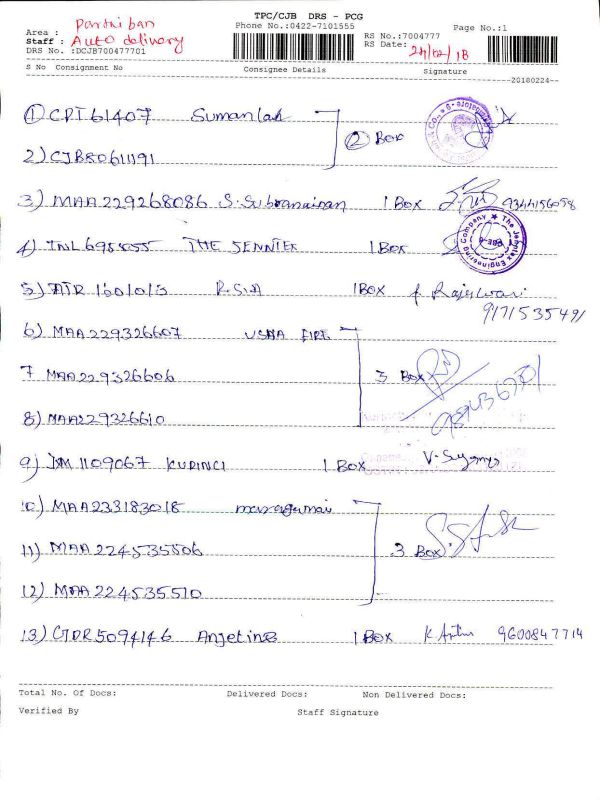 TPC/CJB DRS - PCG
Phone No.:0422-7101555
Page No.:1
Area : Parthiban
Staff : Auto delivery
DRS No. :DCJB700477701
RS No.:7004777
RS Date: 24/02/18
S No Consignment No Consignee Details Signature
20180224
1) CPT61407 Sumanlak
2 Box
2) CJB80611191
3) MAA229268086 S. Subramaian 1 Box 9344156098
4) TNL698 THE SENNTEK 1 Box
The Jemntex Engineering Company
5) R.S.A 1Box Rajeswari
9171535491
6) MAA229326607 USHA FIRE
7 MAA229326606 3 Box
8) MAA229326610
9) 1109067 KURINCI 1 Box V.
10) MAA233183018
11) MAA224535506 3 Box
12) MAA224535510
13) 5094146 Anjeting 1 Box K 9600847714
Total No. Of Docs: Delivered Docs: Non Delivered Docs:
Verified By Staff Signature